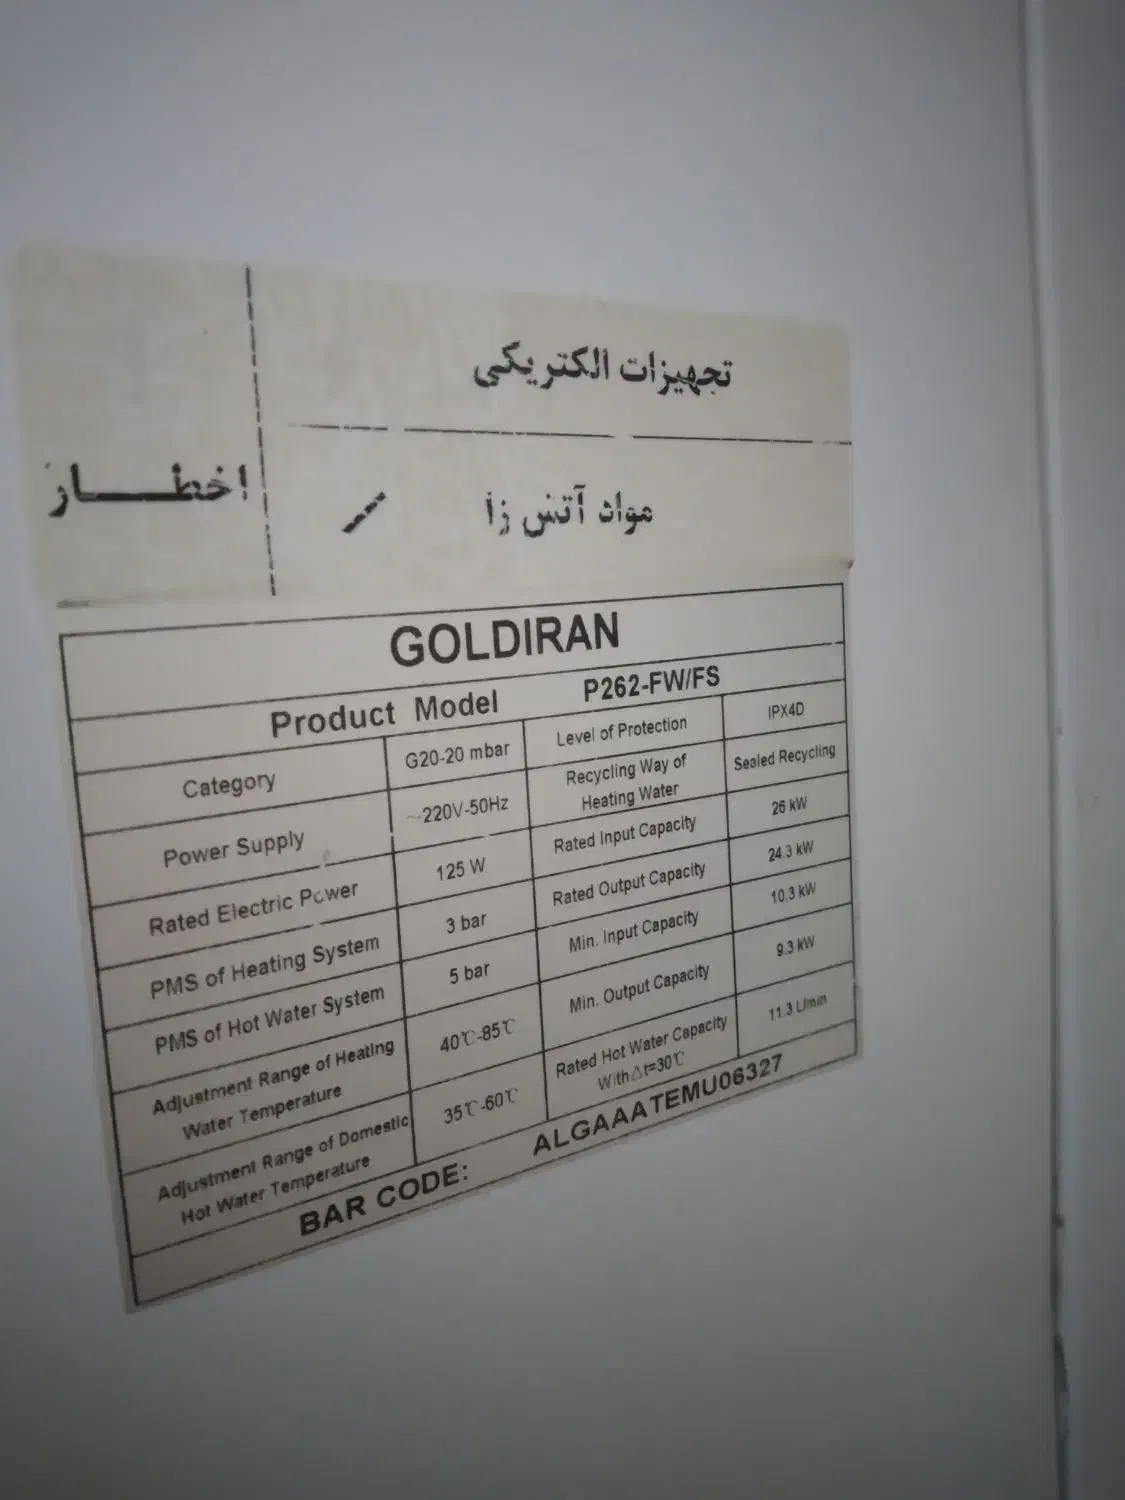 تجهیزات الکتریکی
اخطار
مواد آتش زا
GOLDIRAN
Product Model P262-FW/FS
Category G20-20 mbar Level of Protection IPX4D
Power Supply ~220V-50Hz Recycling Way of Heating Water Sealed Recycling
Rated Electric Power 125 W Rated Input Capacity 26 kW
PMS of Heating System 3 bar Rated Output Capacity 24.3 kW
PMS of Hot Water System 5 bar Min. Input Capacity 10.3 kW
Adjustment Range of Heating Water Temperature 40℃-85℃ Min. Output Capacity 9.3 kW
Adjustment Range of Domestic Hot Water Temperature 35℃-60℃ Rated Hot Water Capacity With△t=30℃ 11.3 L/min
BAR CODE: ALGAAATEMU06327